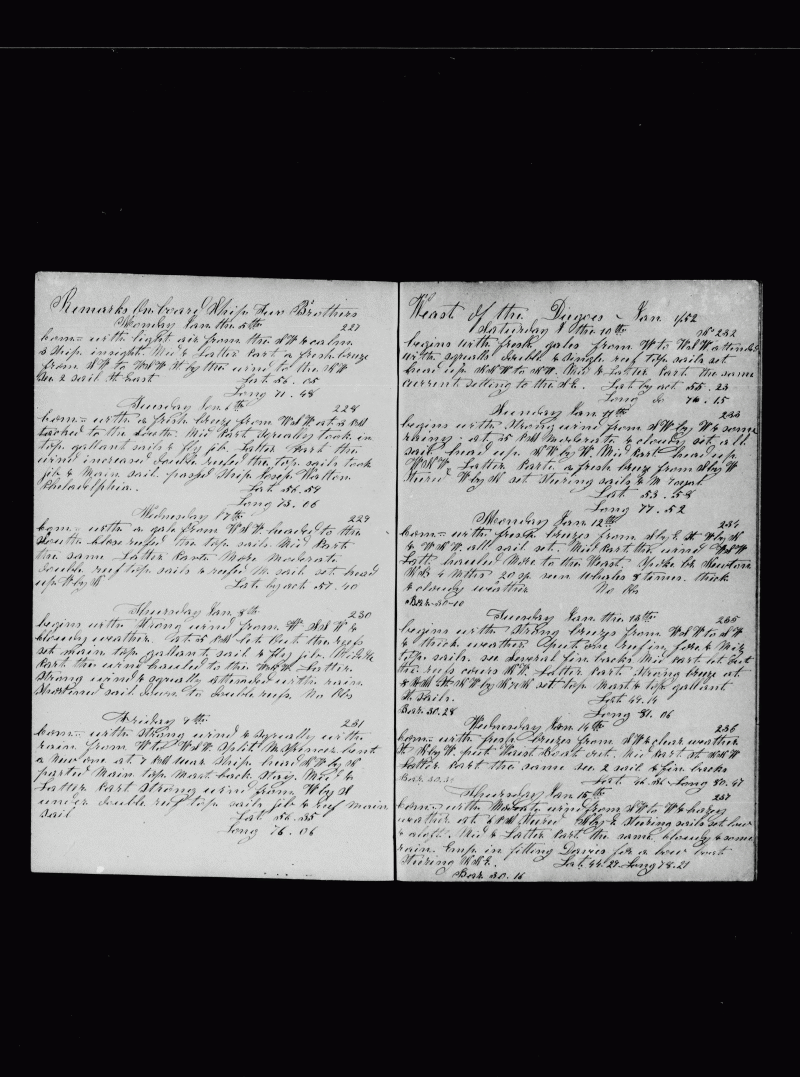 Remarks on board Ship Two Brothers
Monday Jan the 5th 227
com= with light air from the SW & calm
3 Ship insight. Mid & Latter Part a fresh breze
from SW to WSW St by the wind to the NW
See 2 sail St East Lat 56.05
Long 71.48
Tuesday Jan 6th 228
com= with a fresh breeze from WSW at 3 PM
tacked to the South. Mid Part Squally took in
top gallant sails & fly jib. Latter Part the
wind increased double reefed the top sails took
jib & Main sail. passd Ship Joseph Walton
Philadelphia. Lat 56.59
Long 73.06
Wednesday 7th 229
com= with a gale from WSW. headed to the
South close reefed the top sails Mid Part
the same Latter Parte More Moderate
double reef top sails & reefed M. sail set head
up W by N Lat by act 57.40
Thursday Jan 8th 230
begins with Strong wind from W SSW &
Cloudy weather. at 5 PM let out the reefs
set main top gallant sail & fly jib. Middle
Part the wind hauled to the WSW. Latter
Strong wind & squally attended with rain
Shortened sail down to double reefs. No Obs
Friday 9th 231
com= with Strong wind & Squally with
rain from W to WSW Split M Spencer bent
a new one at 7 PM wear Ship head SW by S
parted Main top Mast back Stay. Mid &
Latter Part Strong wind from W by S
under double reef top sails jib & reef main
sail Lat 56.35
Long 76.06
West of the Diegos Jan 1/52
Saturday the 10th 232
begins with fresh gales from W to WSW attended
with squalls double & single reef top sails set
head up NNW to NW. Mid & Latter Part the same
current setting to the SE. Lat by act 55.23
Long do 76.15
Sunday Jan 11th 233
begins with Strong wind from SW by W & some
rainy. at 5 PM Moderate & cloudy set all
sail head up NW by W. Mid Part head up
WNW. Latter Parte a fresh breze from S by W
Steerd W by N set Steering sails & M royal
Lat 53.58
Long 77.52
Monday Jan 12th 234
com= with fresh brezes from S by E St W by N
& WNW. all sail set. Mid Part the wind
Latt hauled More to the West. Spoke br Newton
4 Mths 20 sp seen whales 8 times. thick
& cloudy weather No Obs
Bar. 30.10
Tuesday Jan the 13th 235
begins with Strong brezes from WSW to SW
& thick weather Put one reef in fore & Miz
top sails. see several fin backs Mid part let out
the reefs Latter Part Strong breze at
8 AM St NW by N set top Mast & top gallant
St Sails. Lat 49.14
Bar 30.28 Long 81.06
Wednesday Jan 14th 236
com= with fresh brezes from SW & clear weather
St N by W. put Waist Boat out. Mid Part St NNW
Latter Part the same see 2 sail & fin backs
Bar 30.3 Lat 46.24 Long 80.47
Thursday Jan 15th 237
com= with Moderate wind from SW to W & hazy
weather at 6 PM Steerd N by E Steering sails set low
& aloft. Mid & Latter Part the same cloudy & some
rain. Emp. in fitting Davies for a bow boat
Steering NNE. Lat 44.27 Long 78.21
Bar 30.16